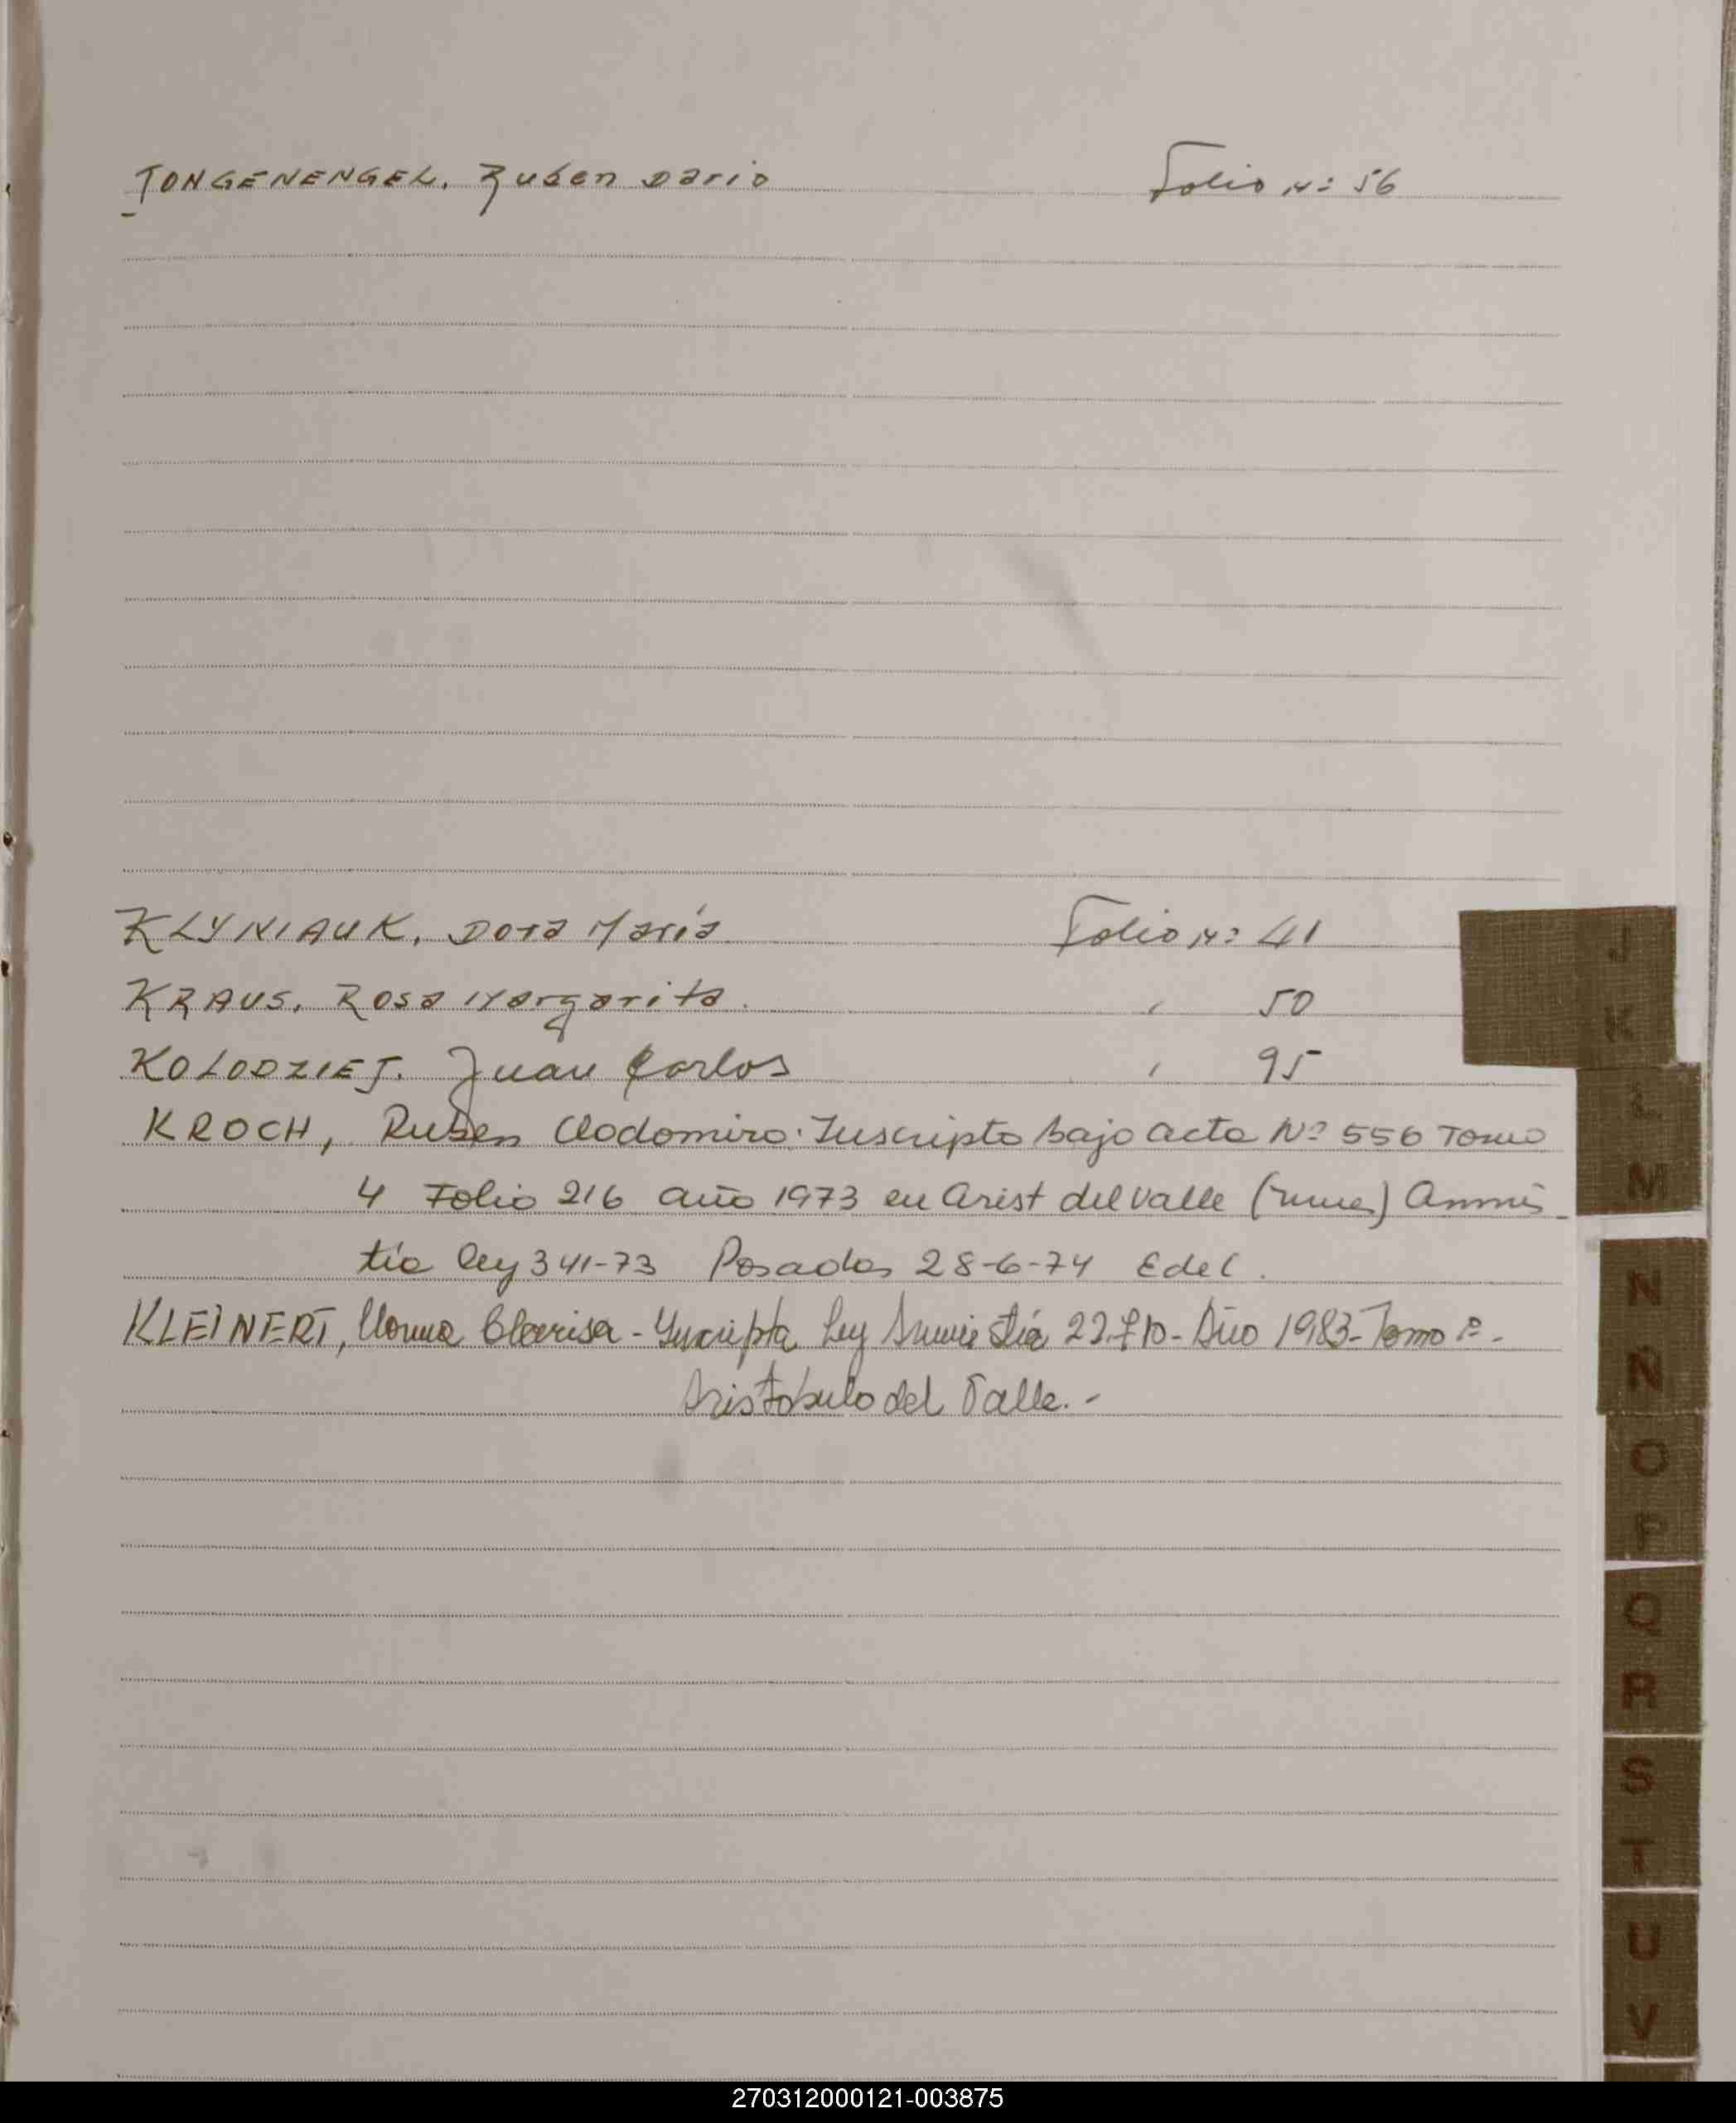 JONGENENGEL, Ruben Dario Folio Nº 56
KLYNIAUK, Dora María Folio Nº 41
KRAUS, Rosa Margarita. " 50
KOLODZIEJ. Juan Carlos " 95
KROCH, Ruben Clodomiro. Inscripto bajo acta Nº 556 Tomo
4 Folio 216 año 1973 en Arist del valle (mnes) Amnis-
tia ley 341-73 Posadas 28-6-74 Edel.
KLEINERT, Norma Clarisa - Inscripta Ley Amnistía 22.710 - Año 1983 - Tomo 1º -
Aristobulo del Valle. -
J
K
L
M
N
Ñ
O
P
Q
R
S
T
U
V
270312000121-003875